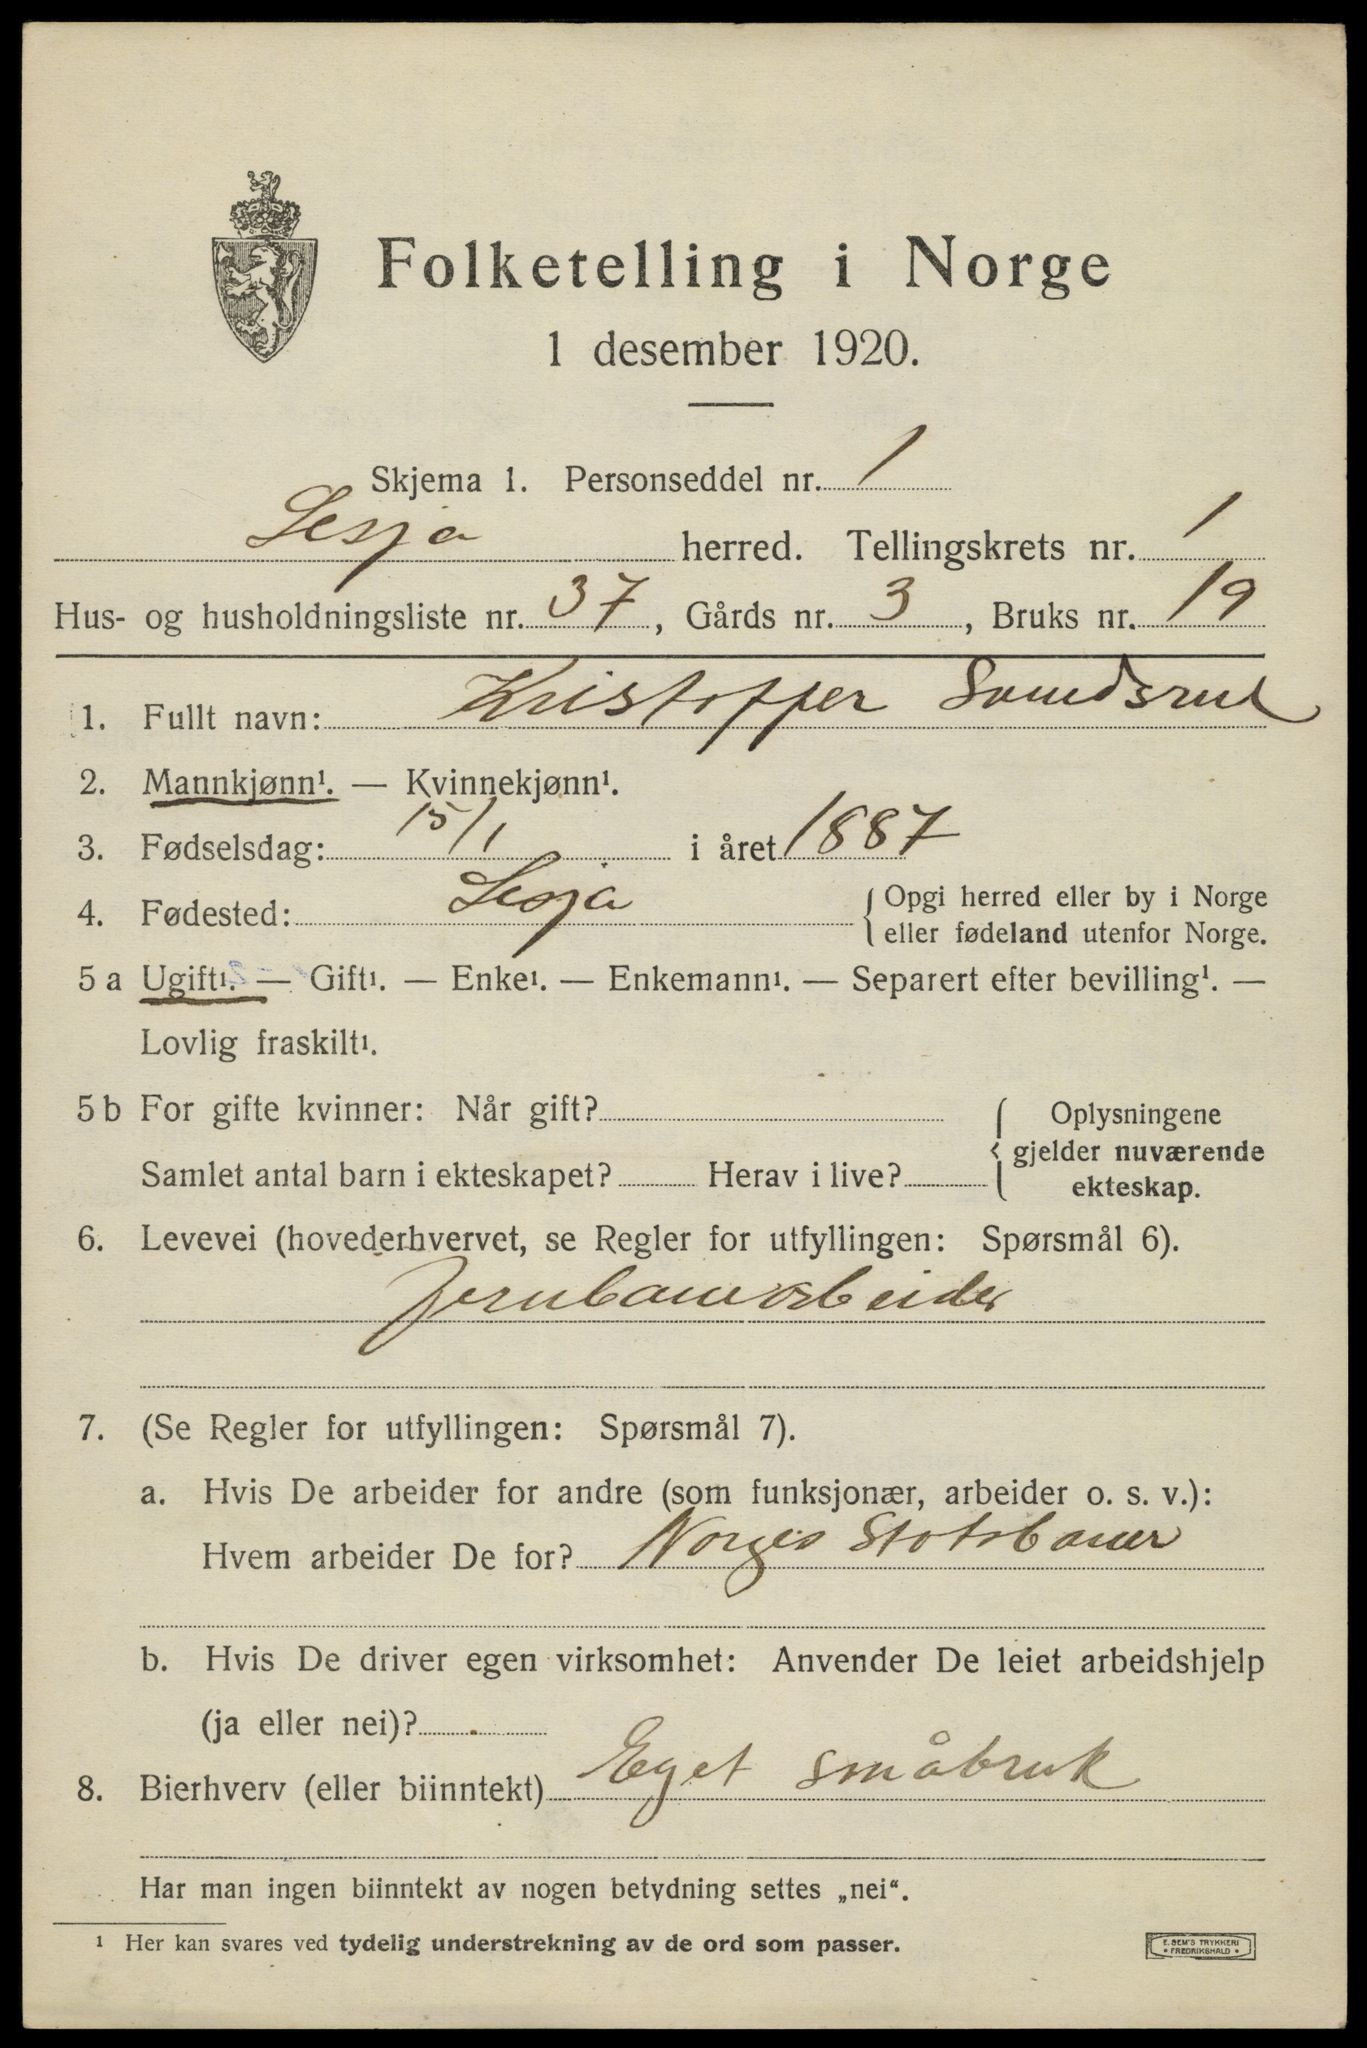 Folketelling i Norge
1 desember 1920.
Skjema 1. Personseddel nr. 1
Lesja herred. Tellingskrets nr. 1
Hus- og husholdningsliste nr. 37, Gårds nr. 3, Bruks nr. 19
1. Fullt navn: Kristoffer
2. Mannkjønn¹. — Kvinnekjønn¹.
3. Fødselsdag: 15/1 i året 1887
4. Fødested: Lesja { Opgi herred eller by i Norge
eller fødeland utenfor Norge.
5 a Ugift¹. — Gift¹. — Enke¹. — Enkemann¹. — Separert efter bevilling¹. —
Lovlig fraskilt¹.
5 b For gifte kvinner: Når gift?
Samlet antal barn i ekteskapet? Herav i live?
{ Oplysningene
gjelder nuværende
ekteskap.
6. Levevei (hovederhvervet, se Regler for utfyllingen: Spørsmål 6).
Jernbanearbeider
7. (Se Regler for utfyllingen: Spørsmål 7).
a. Hvis De arbeider for andre (som funksjonær, arbeider o. s. v.):
Hvem arbeider De for? Norges Statsbaner
b. Hvis De driver egen virksomhet: Anvender De leiet arbeidshjelp
(ja eller nei)?
8. Bierhverv (eller biinntekt) Eget småbruk
Har man ingen biinntekt av nogen betydning settes „nei“.
¹ Her kan svares ved tydelig understrekning av de ord som passer.
E. SEM'S TRYKKERI
• FREDRIKSHALD •